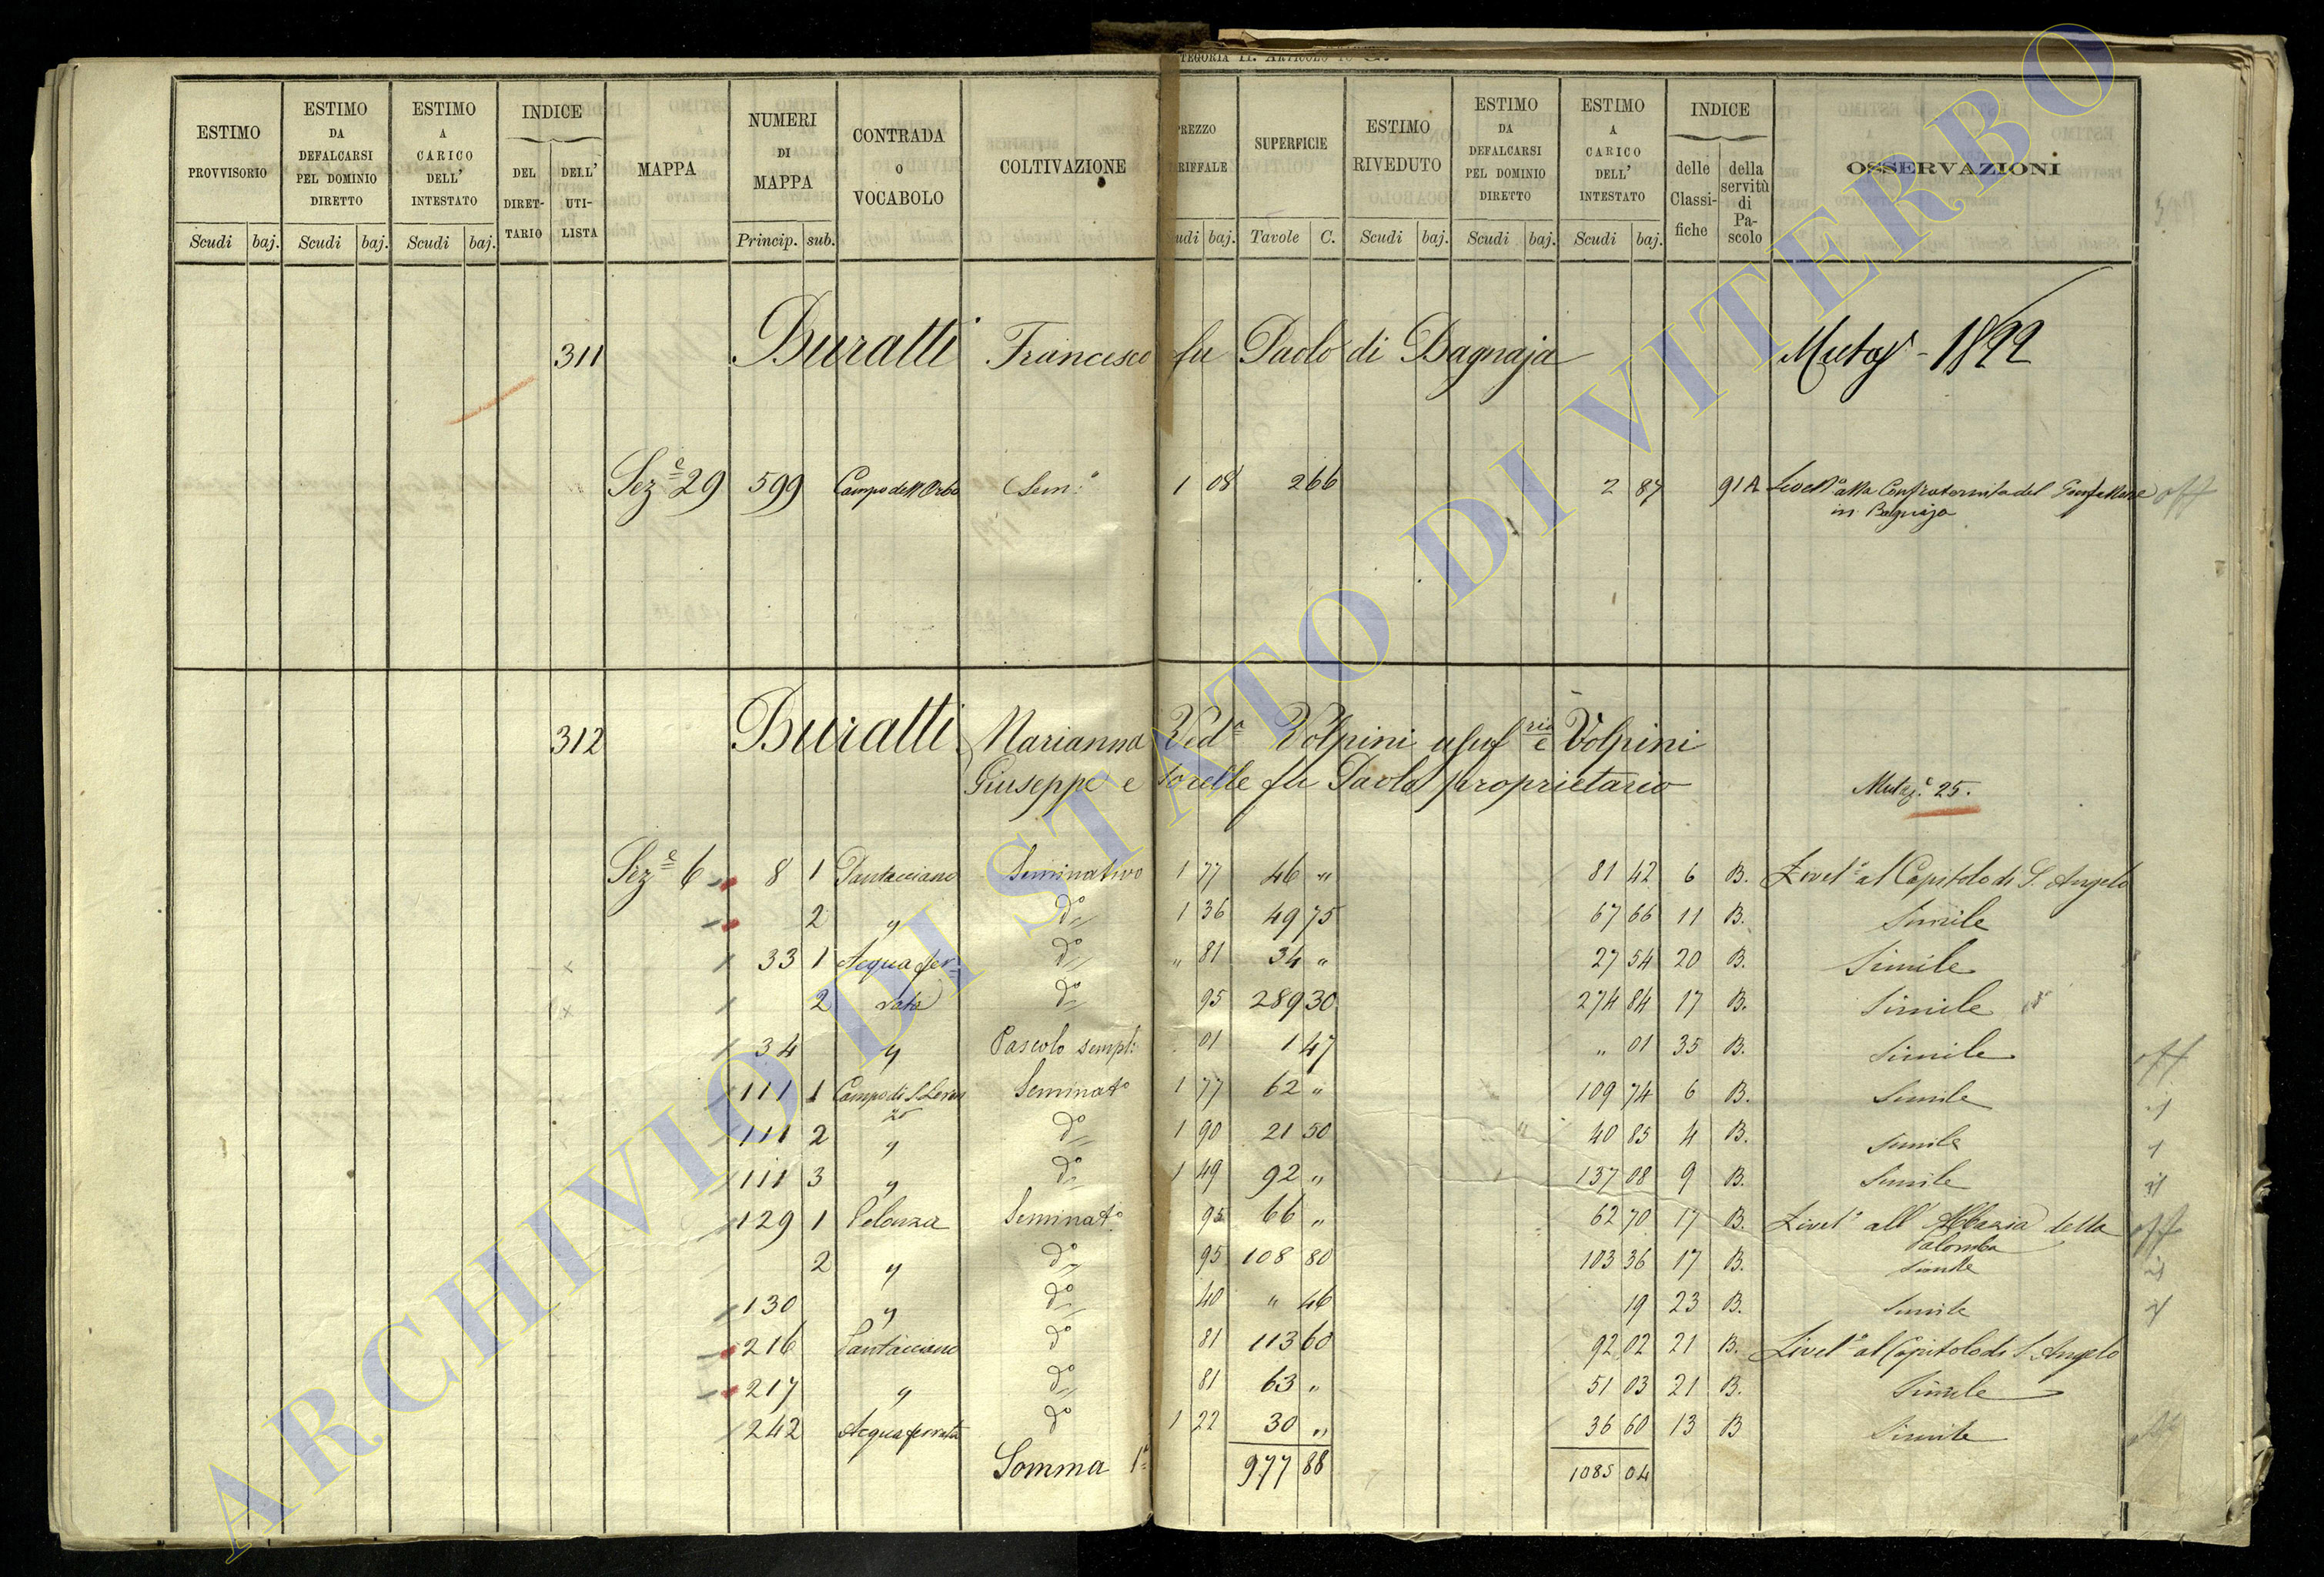 TEGORIA II. ARTICOLO 10
ESTIMO PROVVISORIO Scudi baj.
ESTIMO DA DEFALCARSI PEL DOMINIO DIRETTO Scudi baj.
ESTIMO A CARICO DELL' INTESTATO Scudi baj.
INDICE DEL DIRET-TARIO DELL' UTI-LISTA
MAPPA
NUMERI DI MAPPA Princip. sub.
CONTRADA O VOCABOLO
COLTIVAZIONE
PREZZO TARIFFALE Scudi baj.
SUPERFICIE Tavole C.
ESTIMO RIVEDUTO Scudi baj.
ESTIMO DA DEFALCARSI PEL DOMINIO DIRETTO Scudi baj.
ESTIMO A CARICO DELL' INTESTATO Scudi baj.
INDICE delle Classi-fiche della servitù di Pa-scolo
OSSERVAZIONI
311 Buratti Francesco fu Paolo di Bagnaja
Seze 29 599 Campo dell Orbo Sem.o 1 08 2 66 2 87 91 A Livello alla Confraternita del Gonfalone off
in Bagnaja
312 Buratti Marianna Veda Volpini usufria e Volpini
Giuseppe e sorelle fu Paolo proprietario Mutaz.e 25.
Seze 6 8 1 Pantacciano Seminativo 1 77 46 " 81 42 6 B. Livelo al Capitolo di S. Angelo
2 " do 1 36 49 75 67 66 11 B. Simile
33 1 Acquafer- do " 81 34 " 27 54 20 B. Simile
2 rata do 95 289 30 274 84 17 B. Simile
34 " Pascolo sempl. 01 1 47 " 01 35 B. Simile off
111 1 Campo di S Loren Seminato 1 77 62 " 109 74 6 B. Simile
zo
111 2 " do 1 90 21 50 40 85 4 B. Simile
111 3 " do 1 49 92 " 137 08 9 B. Simile
129 1 Pelonza Seminato 95 66 " 62 70 17 B. Livelo all' Abbazia della off
Palomba
2 " do 95 108 80 103 36 17 B. Simile
130 " do 40 " 46 19 23 B. Simile
216 Pantacciano do 81 113 60 92 02 21 B. Livelo al Capitolo di S Angelo
217 " do 81 63 " 51 03 21 B. Simile
242 Acquaferrata do 1 22 30 " 36 60 13 B Simile
Somma 1a 977 88 1085 04
ARCHIVIO DI STATO DI VITERBO